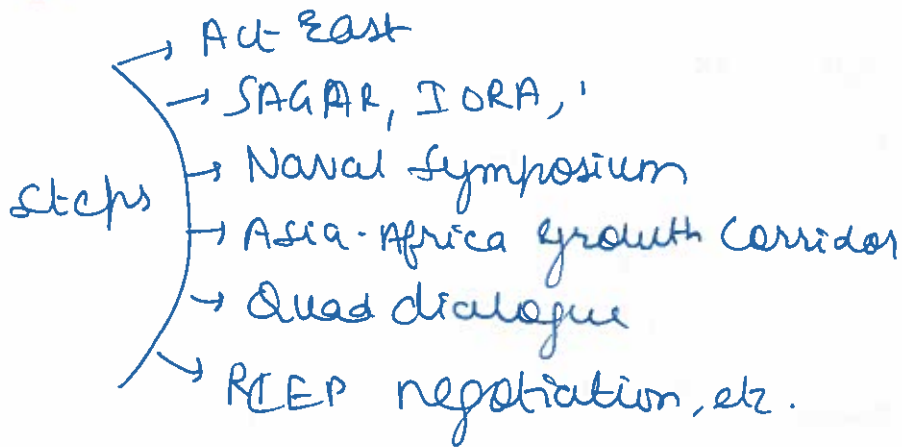 → Act East
→ SAGAR, IORA, '
→ Naval Symposium
Steps
→ Asia-Africa growth Corridor
→ Quad dialogue
→ RCEP negotiation, etc.